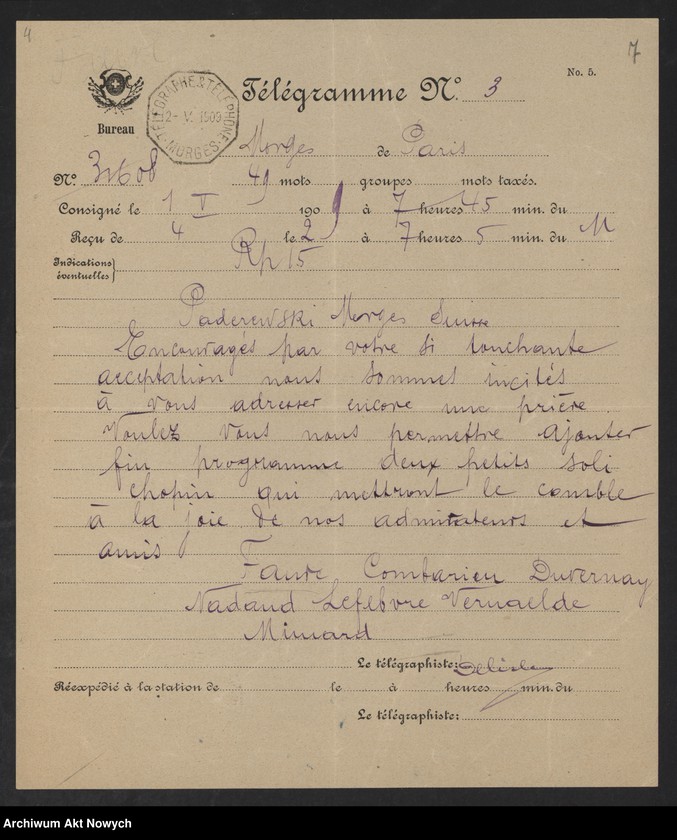 4
7
No. 5.
Télégramme No. 3
TÉLÉGRAPHE & TÉLÉPHONE
2- V. 1909
MORGES
Bureau
Morges de Paris
No. 31608 49 mots groupes mots taxés.
Consigné le 1 V 1909 à 7 heures 45 min. du
Reçu de 4 le 2 à 7 heures 5 min. du M
Indications éventuelles} Rp 15
Paderewski Morges Suisse
Encouragés par votre si touchante
acceptation nous sommes incités
à vous adresser encore une prière
Voulez vous nous permettre ajouter
fin programme deux petits soli
chopin qui mettront le comble
à la joie de nos admirateurs et
amis
Faure Combarieu Duvernay
Nadaud Lefebvre Vernaelde
Mimard
Le télégraphiste:
Réexpédié à la station de le à heures min. du
Le télégraphiste:
Archiwum Akt Nowych